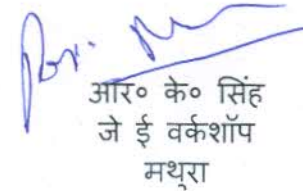 आर० के० सिंह
जे ई वर्कशॉप
मथुरा